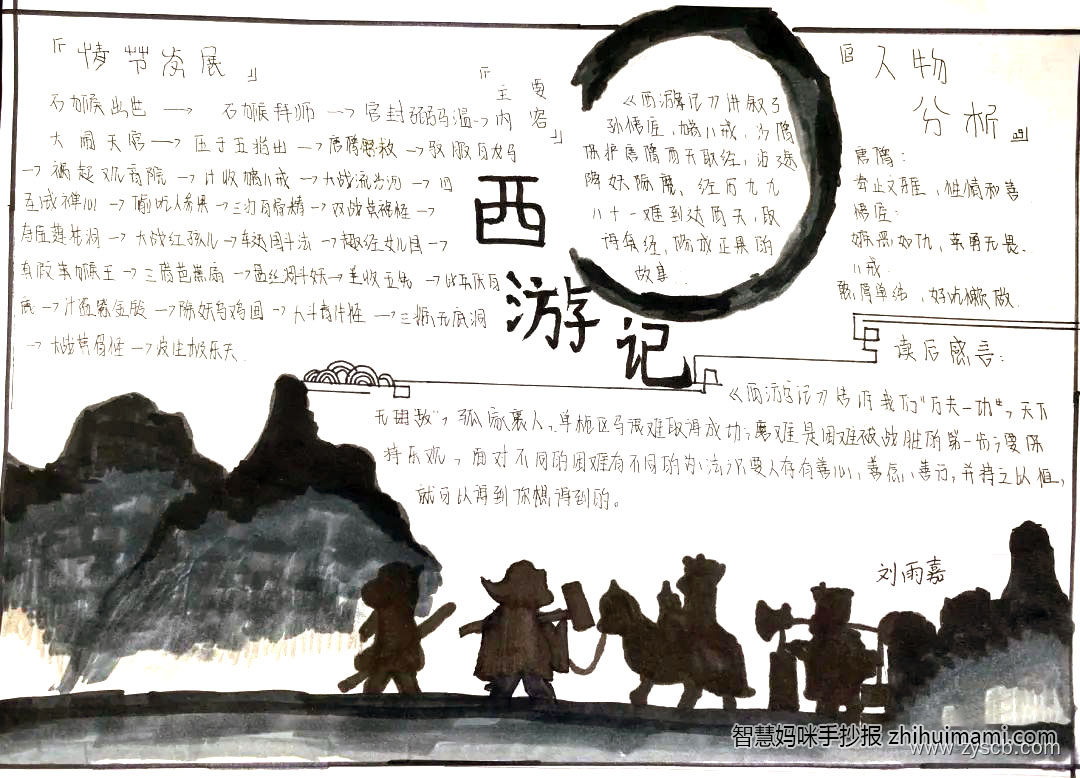 『情节发展』
石猴出世 → 石猴拜师 → 官封弼马温 →
大闹天宫 → 压于五指山 → 唐僧解救 → 收服白龙马
→ 祸起观音院 → 计收猪八戒 → 大战流沙河 → 四
圣试禅心 → 偷吃人参果 → 三打白骨精 → 
→ 大战红孩儿 → 车迟国斗法 → 趣经女儿国 →
真假美猴王 → 三借芭蕉扇 → 
→ 计盗紫金铃 → 除妖乌鸡国 → 大斗青牛怪 → 三探无底洞
→ 大战黄眉怪 → 
『主要
内容』
《西游记》讲叙了
孙悟空，猪八戒，沙僧
保护唐僧西天取经，沿途
降妖除魔、经历九九
八十一难到达西天，取
得真经，修成正果的
故事.
西
游
记
『人物
分析』
唐僧：
举止文雅，性情和善
悟空：
嫉恶如仇，英勇无畏.
八戒：
好吃懒做.
读后感言：
《西游记》告诉我们“万夫一功”，天下
无毋数”，孤家寡人，单枪匹马很难取得成功；离难是困难被战胜的第一步；要保
持乐观，面对不同的困难有不同的办法；要人存有善心，善念，善行，并持之以恒，
就可以得到你想得到的。
刘雨嘉
智慧妈咪手抄报 zhihuimami.com
www.zyscb.com